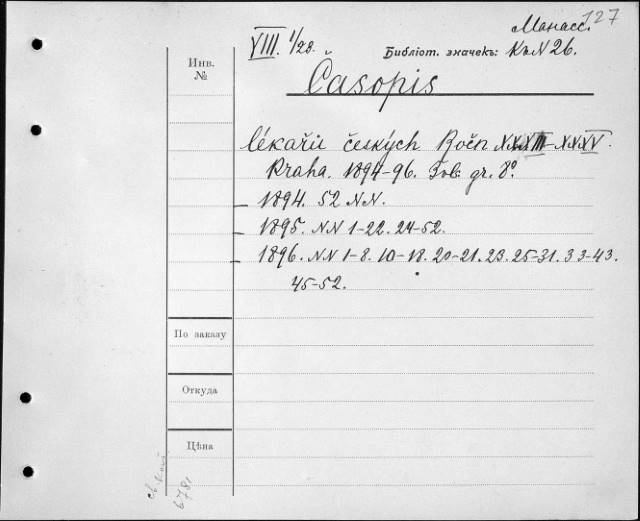 127
Манасс.
VIII. 1/28. Библіот. значекъ: К. N 26.
Инв. №
Časopis
lékařů českých Ročn XXXIII–XXXV.
Praha. 1894–96. gr. 8°.
1894. 52 NN.
1895. NN 1–22. 24–52.
1896. NN 1–8. 10–18. 20–21. 23. 25–31. 33–43.
45–52.
По заказу
Откуда
Цѣна
6781